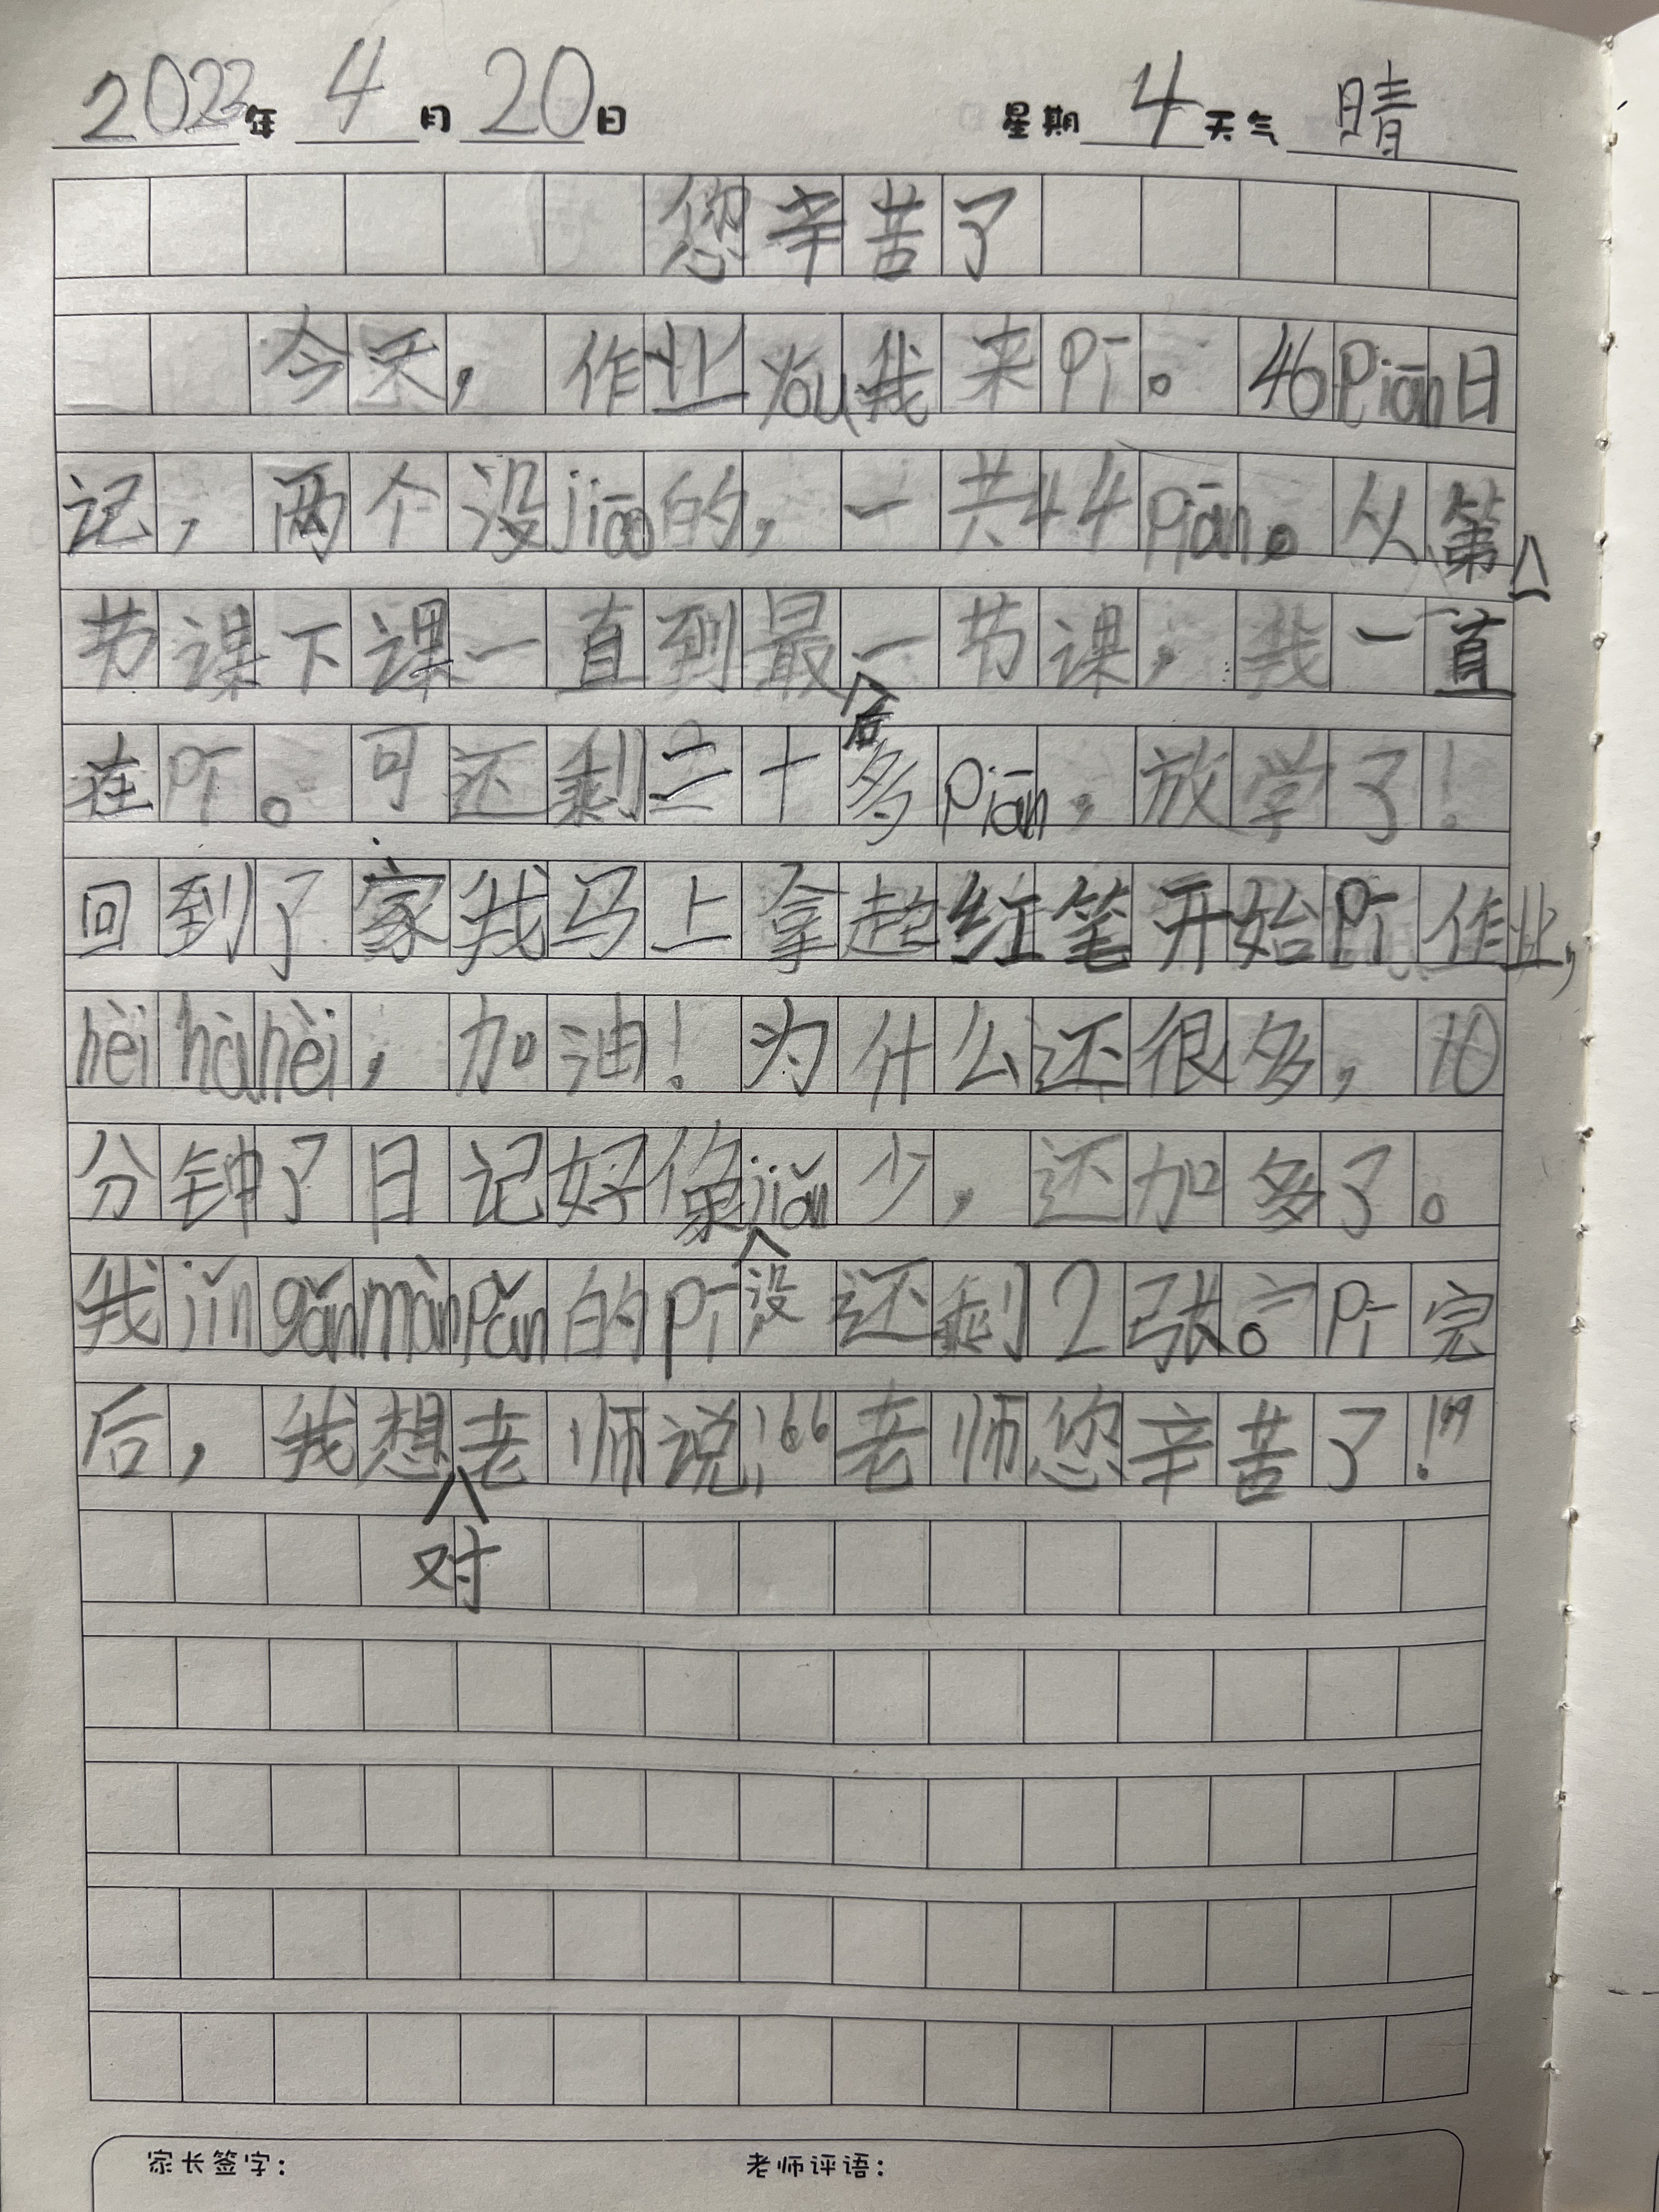 2023年 4月 20日 星期 4 天气 晴
您辛苦了
今天，作业yóu我来pī。46piān日
记，两个没jiāo的，一共44piān。从第二
节课下课一直到最后一节课，我一直
在pī。可还剩三十多piān，放学了！
回到了家我马上拿起红笔开始pī作业，
hèi hà hèi，加油！为什么还很多，10
分钟了日记好像没jiǎn少，还加多了。
我jǐn gǎn màn pǎn的pī，还剩2张。pī完
后，我想对老师说：“老师您辛苦了！”
家长签字： 老师评语：